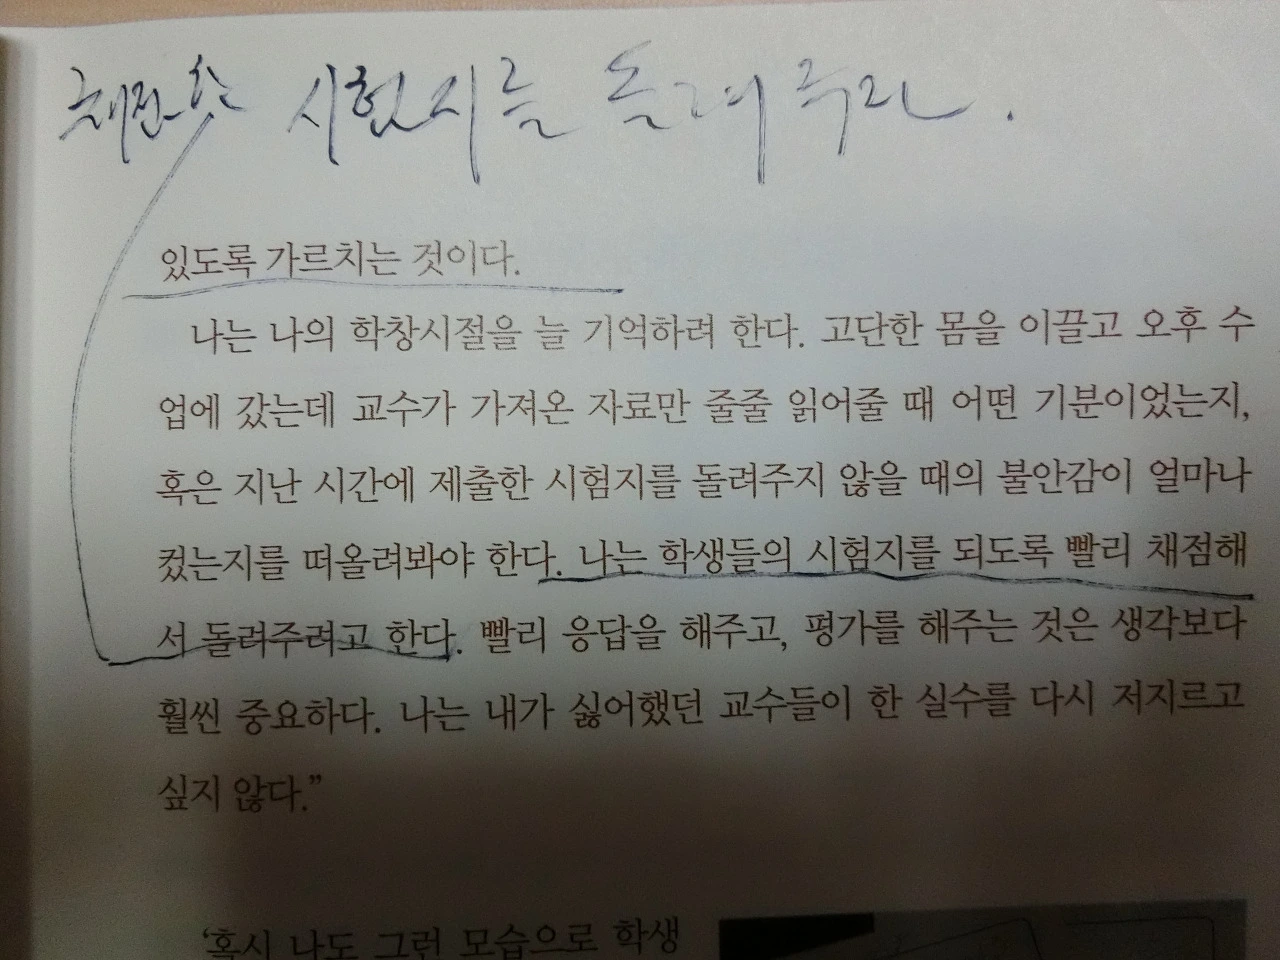 채점한 시험지를 돌려주라.
있도록 가르치는 것이다.
나는 나의 학창시절을 늘 기억하려 한다. 고단한 몸을 이끌고 오후 수
업에 갔는데 교수가 가져온 자료만 줄줄 읽어줄 때 어떤 기분이었는지,
혹은 지난 시간에 제출한 시험지를 돌려주지 않을 때의 불안감이 얼마나
컸는지를 떠올려봐야 한다. 나는 학생들의 시험지를 되도록 빨리 채점해
서 돌려주려고 한다. 빨리 응답을 해주고, 평가를 해주는 것은 생각보다
훨씬 중요하다. 나는 내가 싫어했던 교수들이 한 실수를 다시 저지르고
싶지 않다.”
‘혹시 나도 그런 모습으로 학생